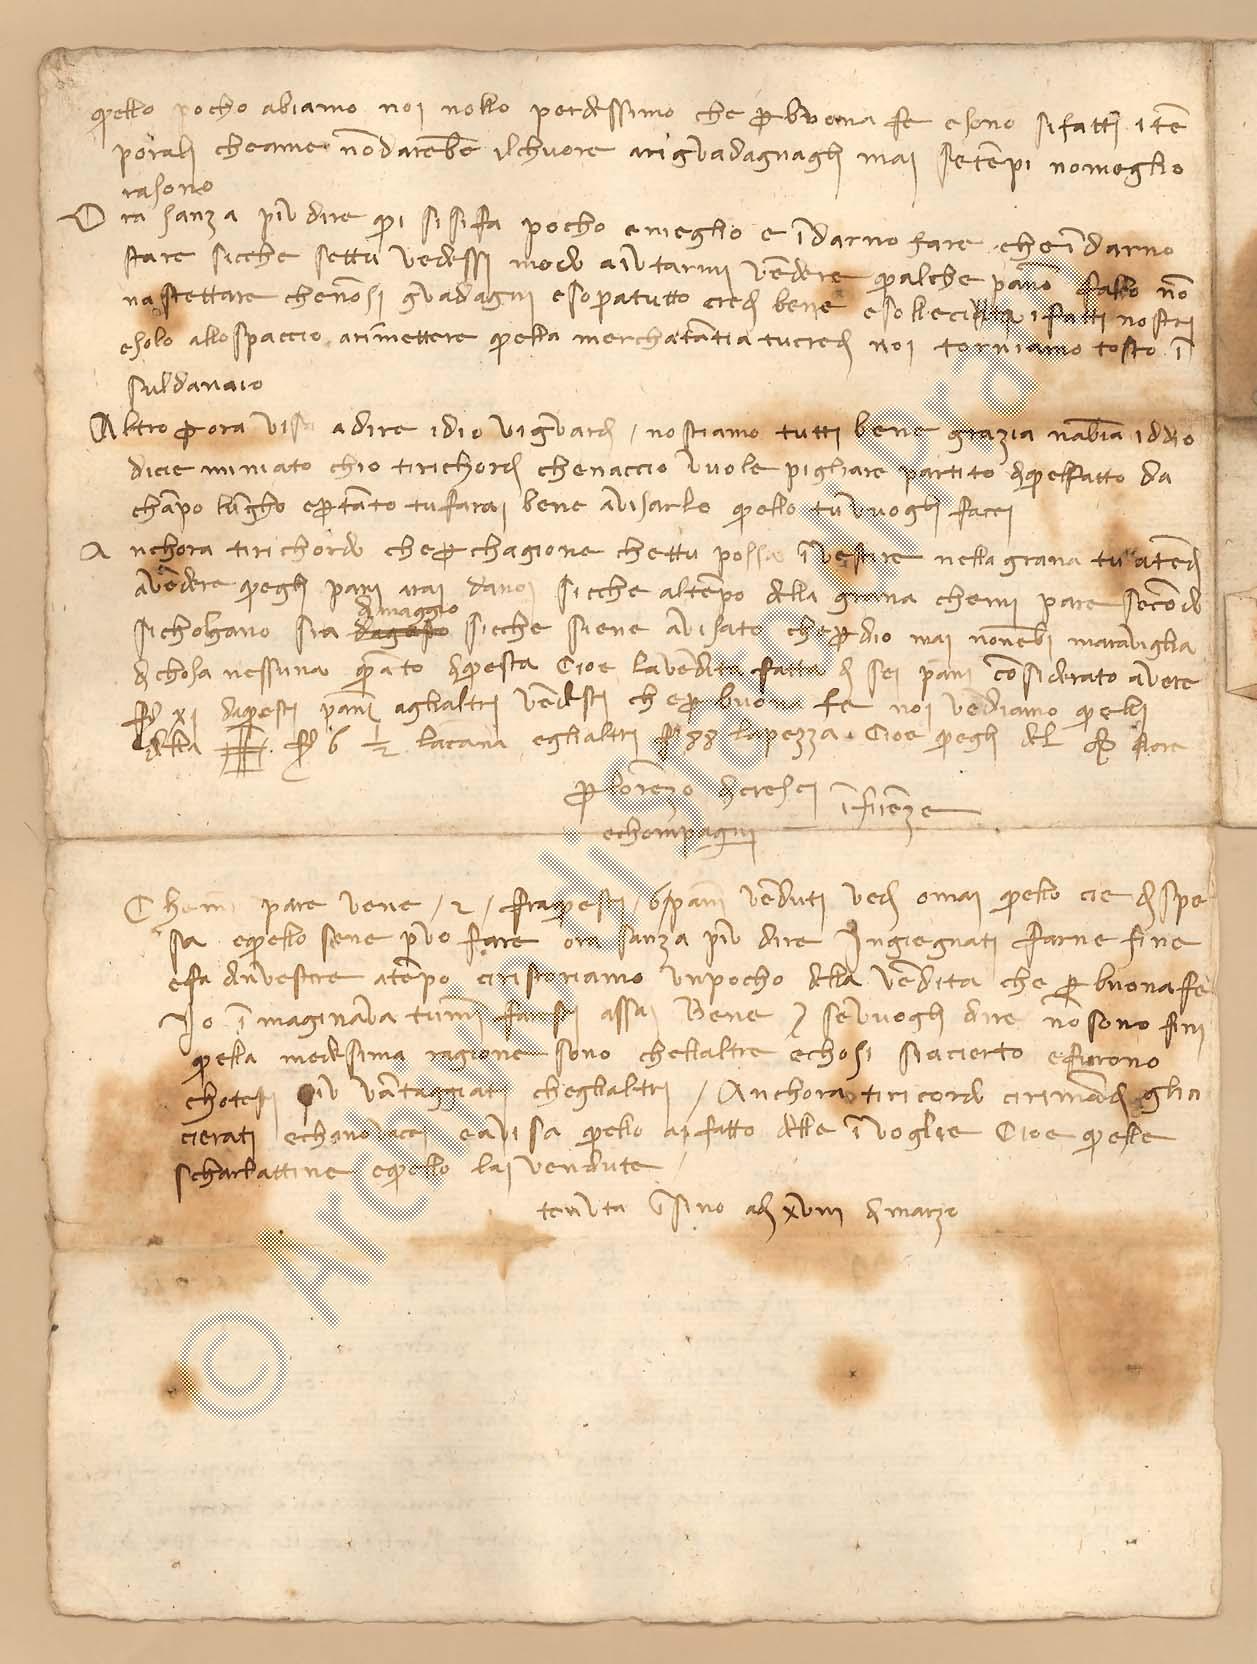 quello pocho abiamo noi nollo perdessimo che per buona fe e sono sifatti i tē
porali cheame nōdarebē ilchuore arighuadagnagli mai setēpi nomeglio
rasono
Ora sanza piu dire qui sisifa pocho emeglio e īdarno fare che īdarno
stare sicche settu vedessi modo aiutarmi vēdere qualche pāno fallo nō
naspettare chenōsi ghuadagni esopratutto credi bene esollecita ifatti nostri
esolo allospaccio arimettere quella merchatātia tucredi noi torniamo tosto ī
suldanaio
Altro per ora visa adire idio vi ghuardi / nostiamo tutti bene grazia nabia iddio
dicie miniato chio tirichordi chenaccio vuole pigliare partito diquelfatto da
chāpo lūgho epertāto tufarai bene avisarlo quello tu vuogli facci
Anchora tirichordo cheper chagione chettu possa īvestire nella grana tu atēdi
avēdere quegli pani arai danoi sicche altēpo della grana chemi pare secōdo
sicholgano sia dimaggio sicche siene avisato cheper dio mai nonebi maraviglia
di chosa nessuna quāto diquesta cioe lavēdita fatta di sei pāni cōsiderato avere
fo xi daquesti pāni aglialtri vēdesti cheper buona fe noi vēdiamo quelli
della fo 6 1/2 lacana eglialtri fo 38 lapezza cioe quegli del fiore
per lorēzo dicresci
echompagni īfirēze
Chemi pare vene / 2 / fraquesti / 6 / pani vēduti vedi omai quello cie dispe
sa equello sene puo fare ora sanza piu dire Ingiegnati farne fine
efa dinvestire atēpo ciristoriamo unpocho della vēdita che per buonafe
Io īmaginava tumi faresti assai Bene / sevuogli dire nōsono fini
quella medesima ragione sono chellaltre echosi siacierto efurono
chotesti piu vātaggiati cheglialtri / Anchora tiricordo cirimādi gli
cierati echanovacci eavisa quello ai fatto delle īvoglie cioe quelle
scharlattine equello lai vendute /
tenuta īsino adi xvııı dimarzo